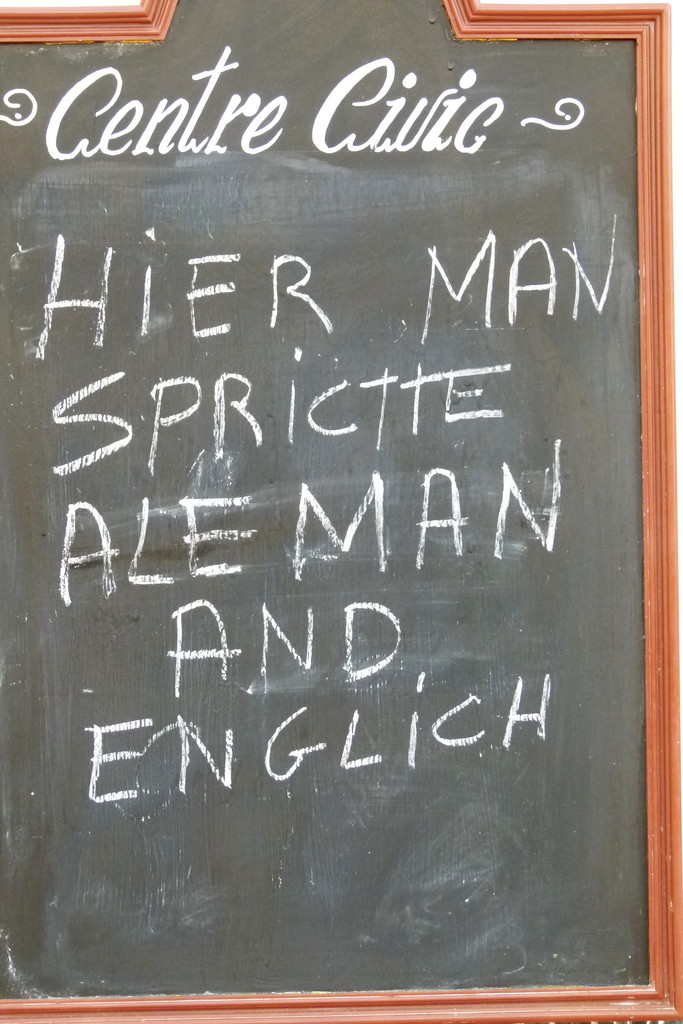 Centre Civic
HiER MAN
SPRiCTTE
ALEMAN
AND
ENGLiCH